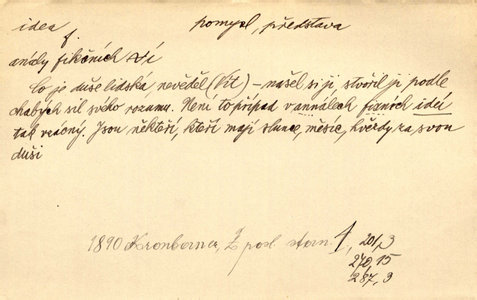 idea pomysl, představa
f.
anály fikčních
Co je duše lidská nevěděl (Vít) – našel si ji, stvořil ji podle
chabých sil svého rozumu. Není to případ v annálech ideí
tak vzácný. Jsou někteří, kteří mají slunce, měsíc, hvězdy za svou
duši
1890 Kronbauer, Z posl storn. 1, 201,3
270,15
287,3